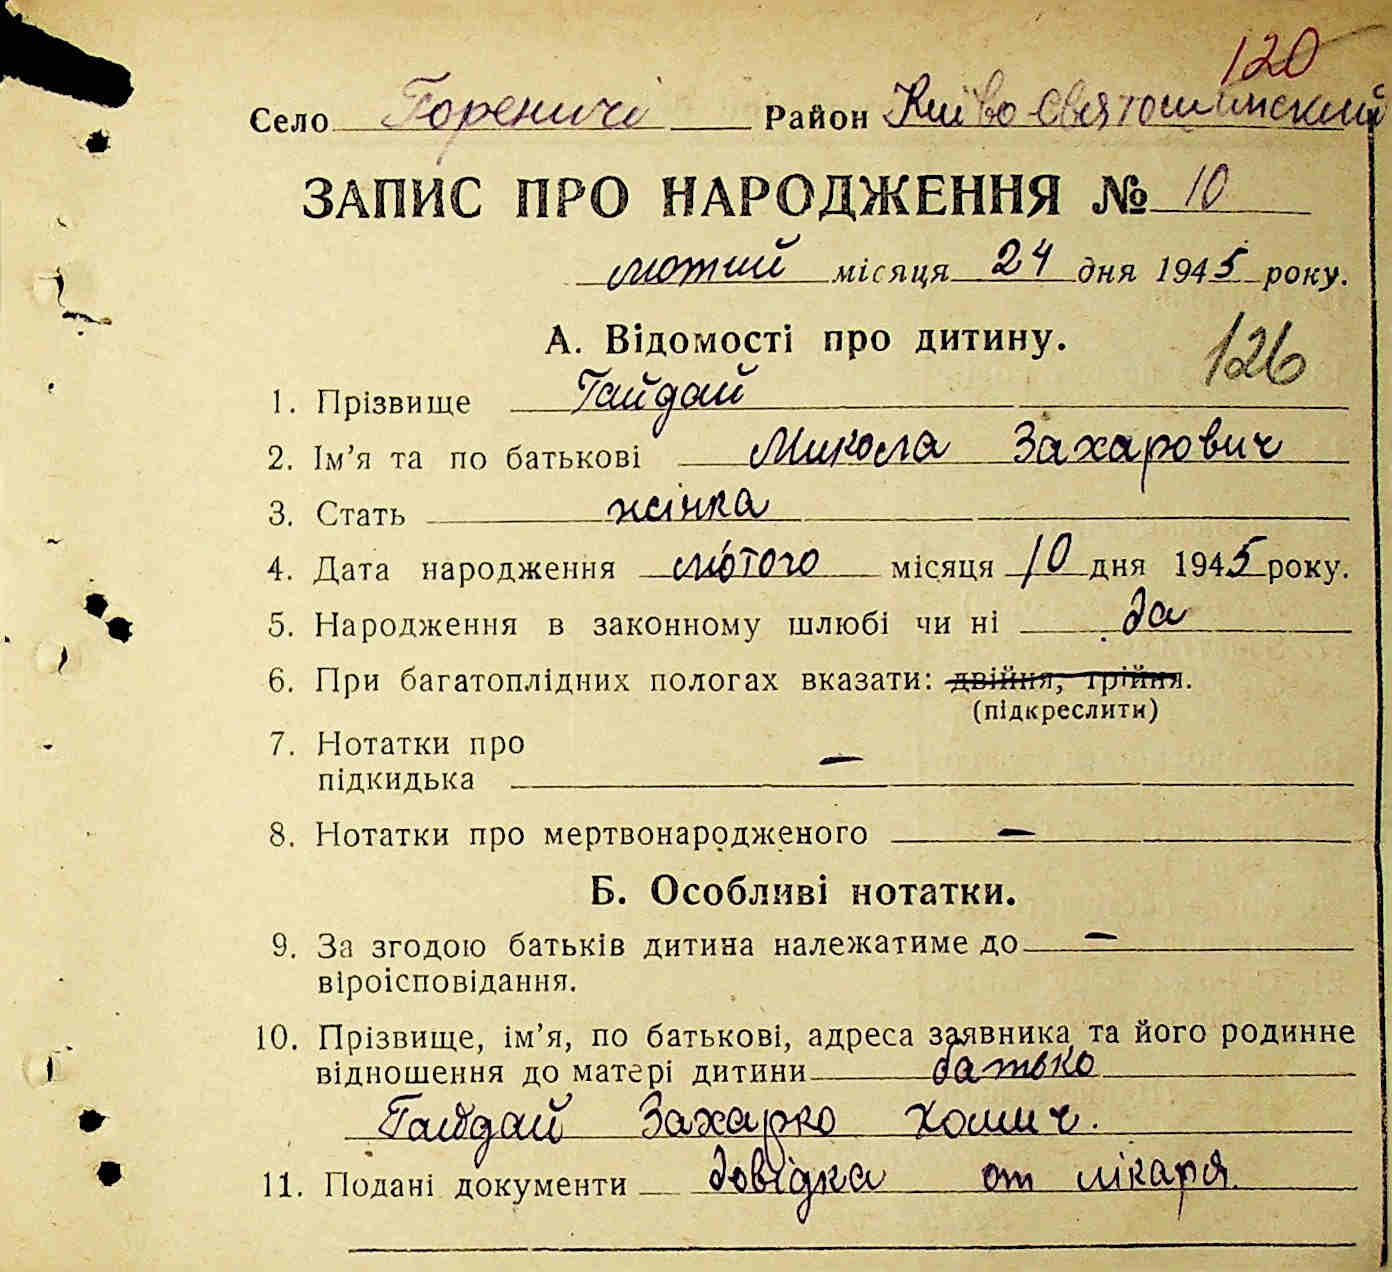 120
Село Гореничі Район Київо-Святошинский
ЗАПИС ПРО НАРОДЖЕННЯ № 10
лютий місяця 24 дня 1945 року.
А. Відомості про дитину.
126
1. Прізвище Гайдай
2. Ім’я та по батькові Микола Захарович
3. Стать жінка
4. Дата народження лютого місяця 10 дня 1945 року.
5. Народження в законному шлюбі чи ні да
6. При багатоплідних пологах вказати: двійня, трійня.
(підкреслити)
7. Нотатки про
підкидька —
8. Нотатки про мертвонародженого —
Б. Особливі нотатки.
9. За згодою батьків дитина належатиме до —
віроісповідання.
10. Прізвище, ім’я, по батькові, адреса заявника та його родинне
відношення до матері дитини батько
Гайдай Захарко Хомич.
11. Подані документи довідка от лікаря.